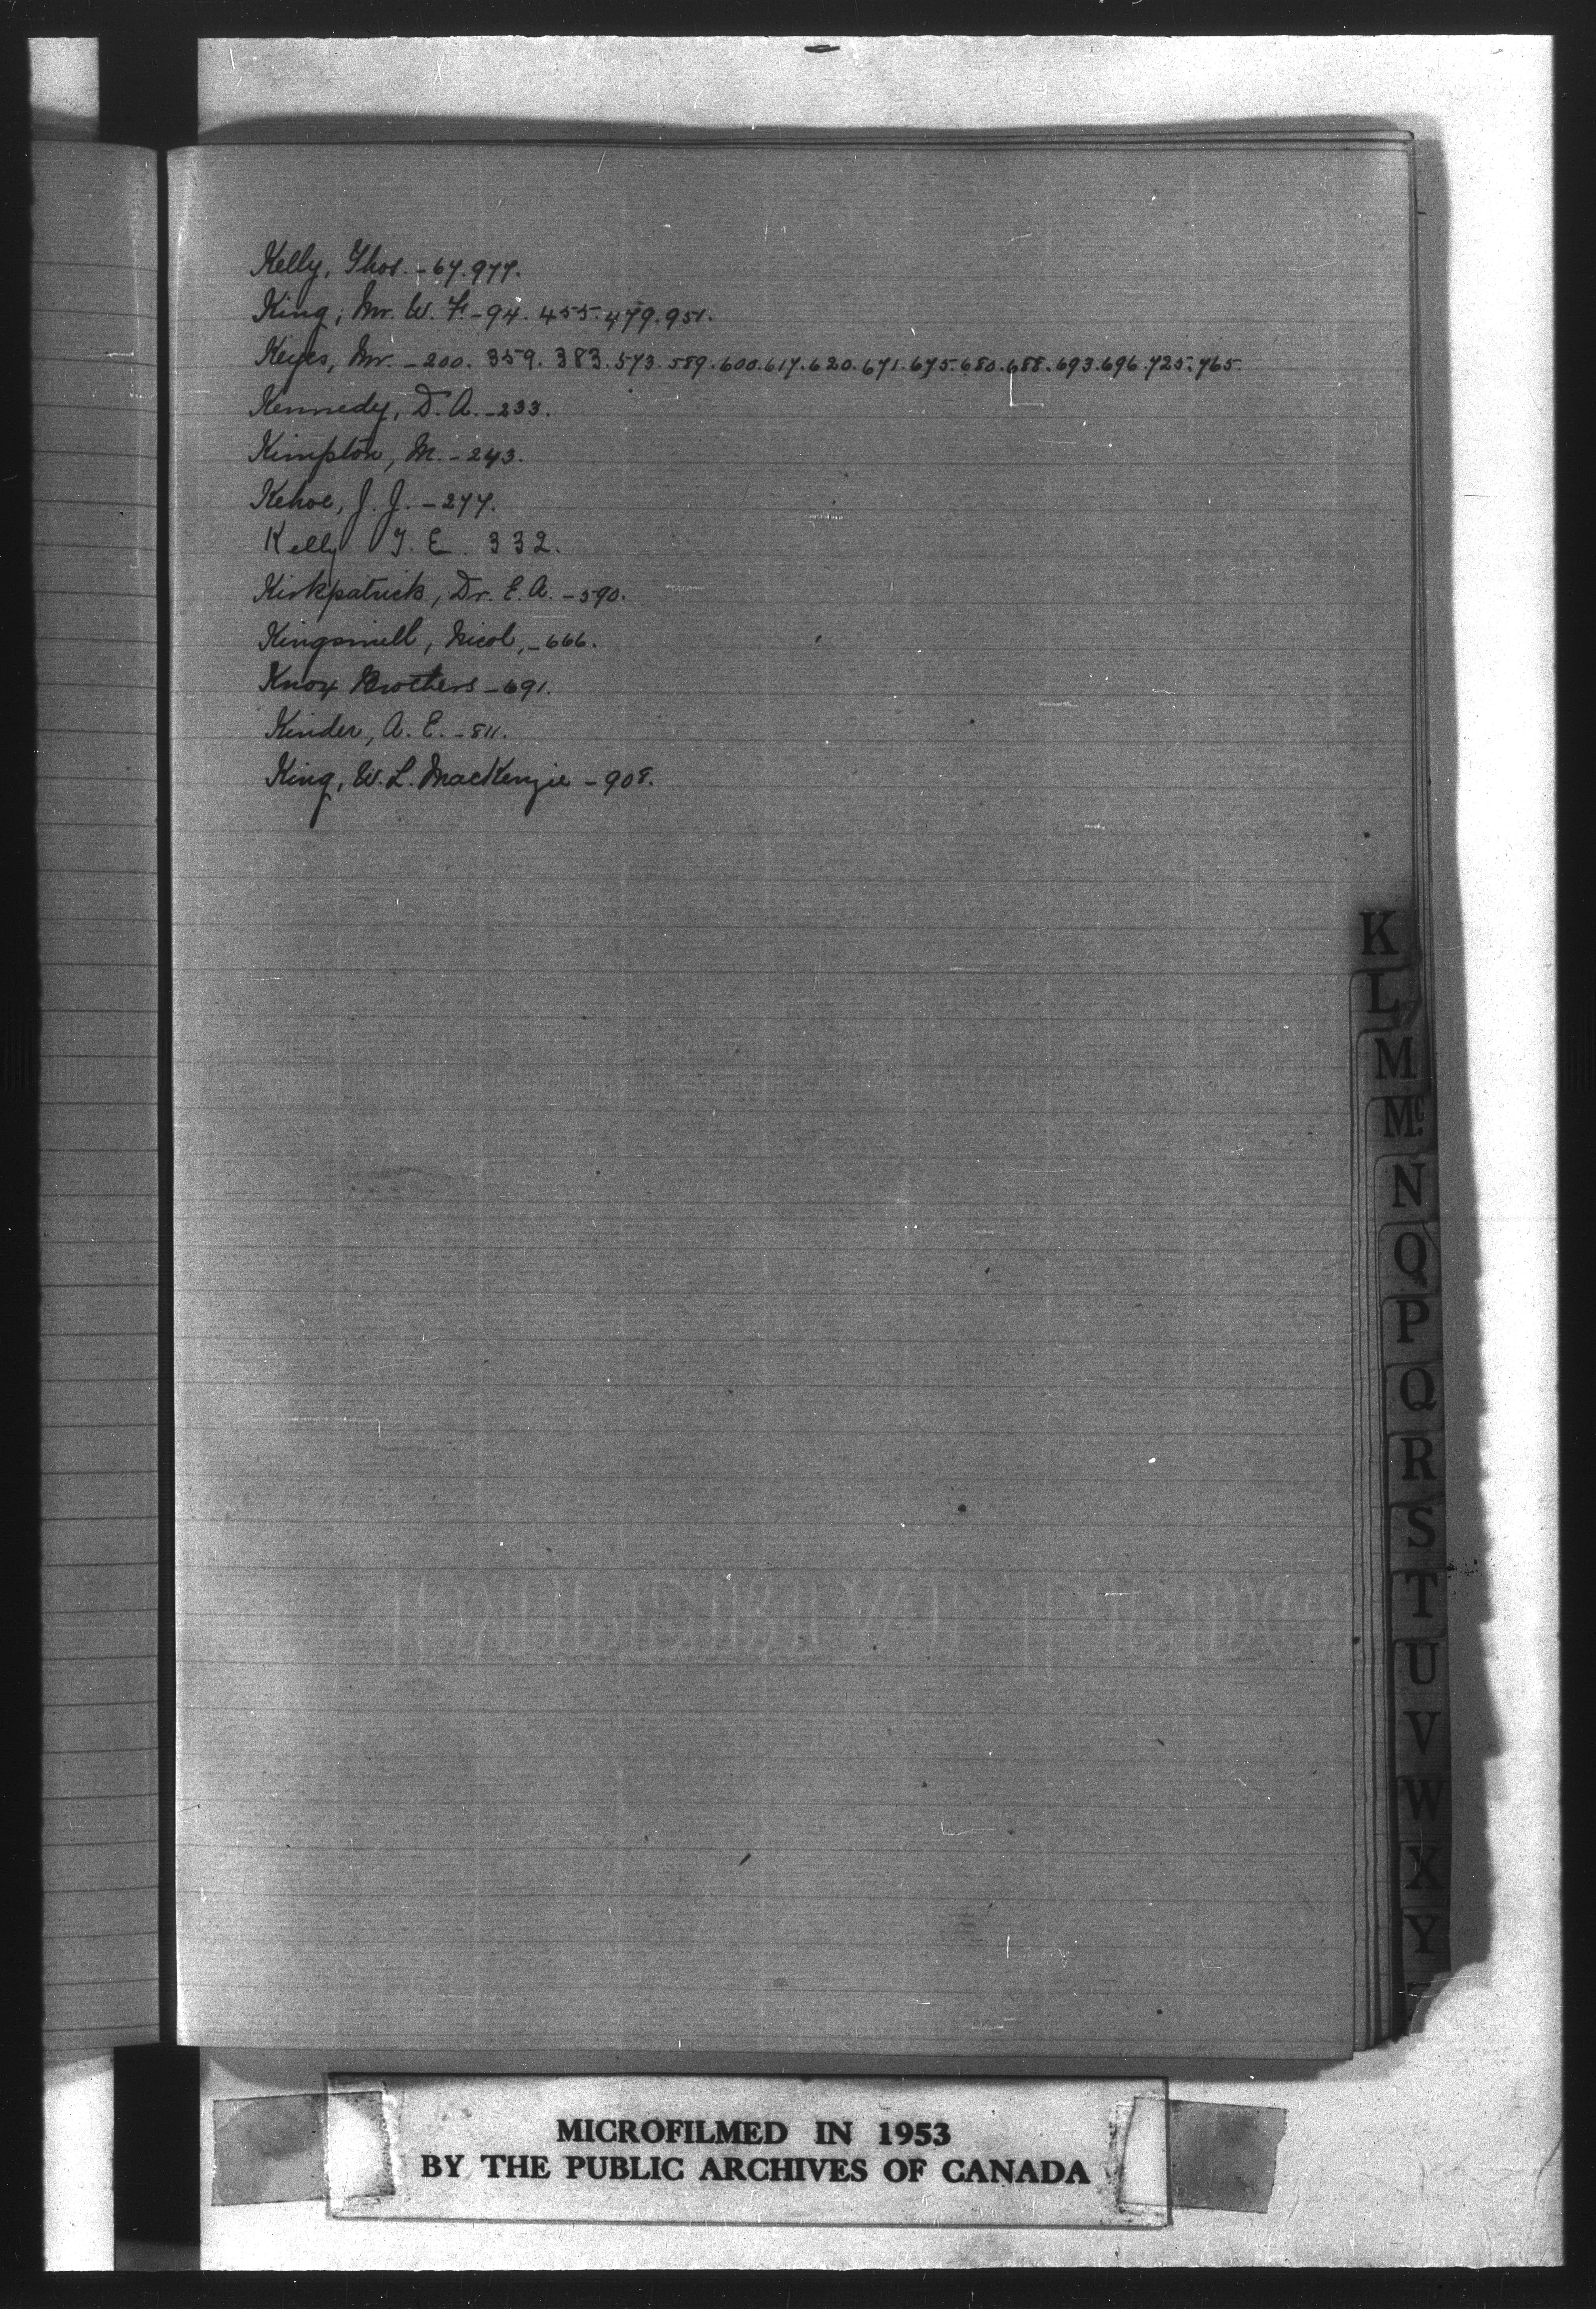 Kelly, Thos. - 67. 977.
King, Mr. W. F. - 94. 455. 479. 951.
Keyes, Mr. - 200. 359. 383. 573. 589. 600. 617. 620. 671. 675. 680. 688. 693. 696. 725. 765.
Kennedy, D. A. - 233.
Kimpton, M. - 243.
Kehoe, J. J. - 277.
Kelly T. E. 332.
Kirkpatrick, Dr. E. A. - 590.
Kingsmill, Nicol, - 666.
Knox Brothers - 691.
Kinder, A. E. - 811.
King, W. L. MacKenzie - 908.
K
L
M
Mc
N
O
P
Q
R
S
T
U
V
W
X
Y
MICROFILMED IN 1953
BY THE PUBLIC ARCHIVES OF CANADA